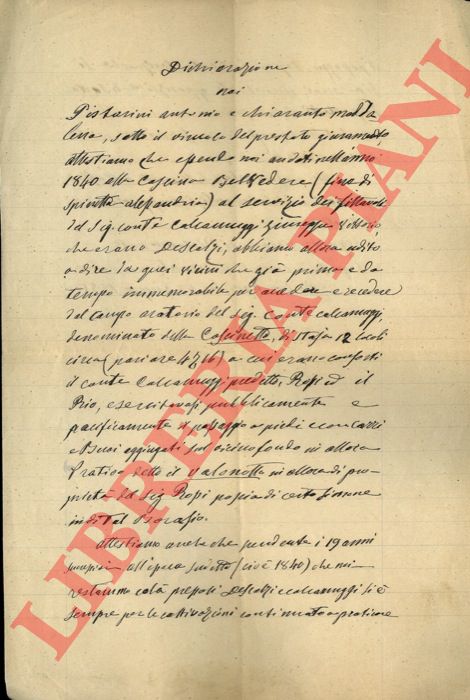 Dichiarazione
noi
Pistarini Antonio e Chiaranto Madda
lena, sotto il vincolo del prestato giuramento,
attestiamo che essendo noi andati nell'anno
1840 alla Cascina Belvedere (fine di
Spinetta Alessandria) al servizio dei
del Sig. Conte Calcamuggi Giuseppe Vittorio,
che erano Descalzi, abbiamo allora udito
a dire da quei vicini che già prima e da
tempo immemorabile per accedere e recedere
dal campo del Sig. Conte Calcamuggi,
denominato della Cascinetta, di Staja 12 locali
circa (pari are ) a cui erano consorti
il Conte Calcamuggi predetto, Rossi ed il
Rio, esercitavasi pubblicamente e
pacificamente il passaggio a piedi e con carri
e Buoi aggiogati sul vicino fondo in allora
Prativo detto il Valonetto in allora di pro
prietà del Sig. Rossi poscia di certo Simone
indi del
Attestiamo anche che pendente i 19 anni
all'epoca (cioè 1840) che noi
restammo colà presso i Descalzi e Calcamuggi si è
sempre per le coltivazioni continuato a praticare
LIBRERIA PIANI